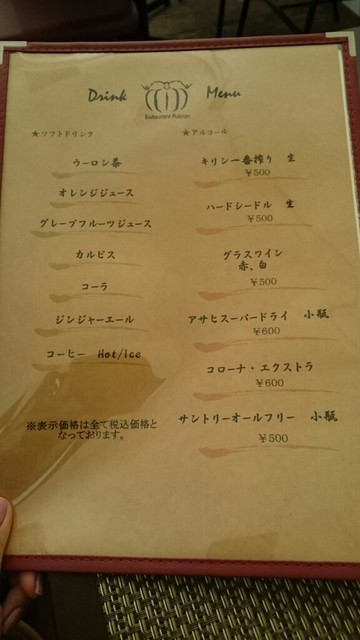 Drink Menu
★ソフトドリンク
ウーロン茶
オレンジジュース
グレープフルーツジュース
カルピス
コーラ
ジンジャーエール
コーヒー Hot/Ice
※表示価格は全て税込価格と
なっております。
★アルコール
キリン一番搾り 生
￥500
ハードシードル 生
￥500
グラスワイン
赤、白
￥500
アサヒスーパードライ 小瓶
￥600
コローナ・エクストラ
￥600
サントリーオールフリー 小瓶
￥500